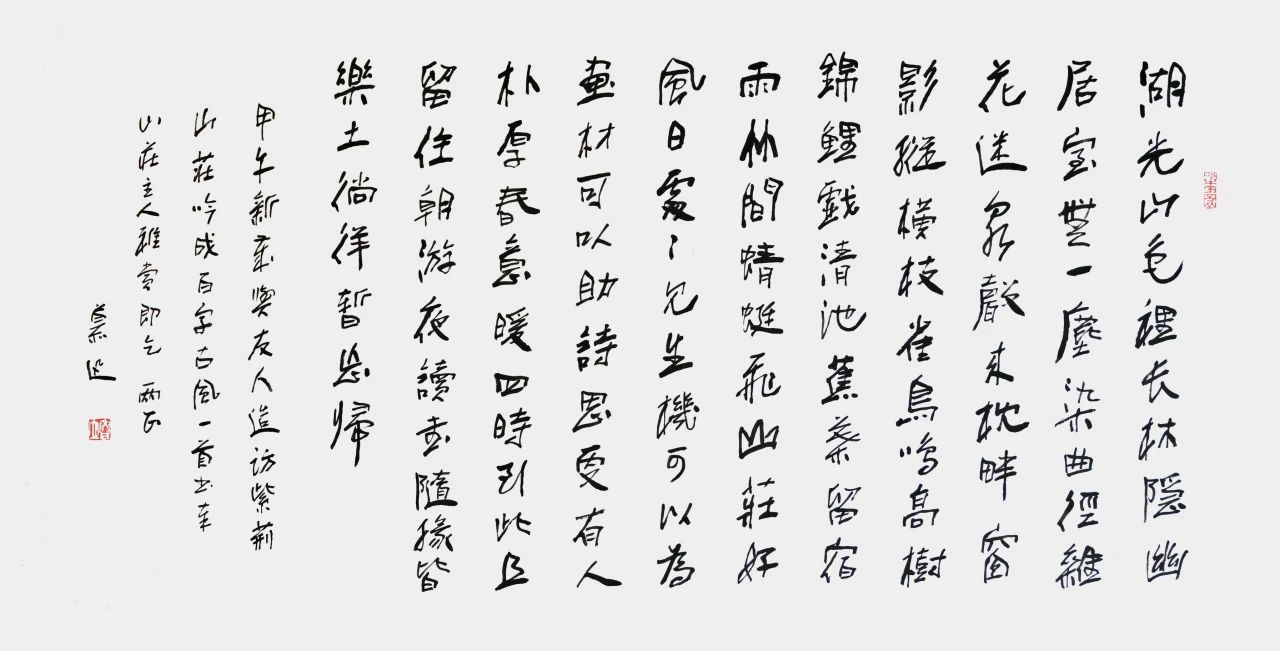 湖光山色裡长林隱幽
居室無一塵染曲徑雜
花迷泉聲来枕畔窗
影縱横枝雀鳥鳴高樹
錦鯉戲清池蕉葉留宿
雨林間蜻蜓飛山莊好
風日處〻見生機可以為
畫材可以助詩思更有人
朴厚春意暖四時到此且
留住朝游夜讀書隨緣皆
樂土徜徉暫忘歸
甲午新歲與友人造访紫荊
山莊吟成百字古風一首书奉
山莊主人雅賞即乞兩正